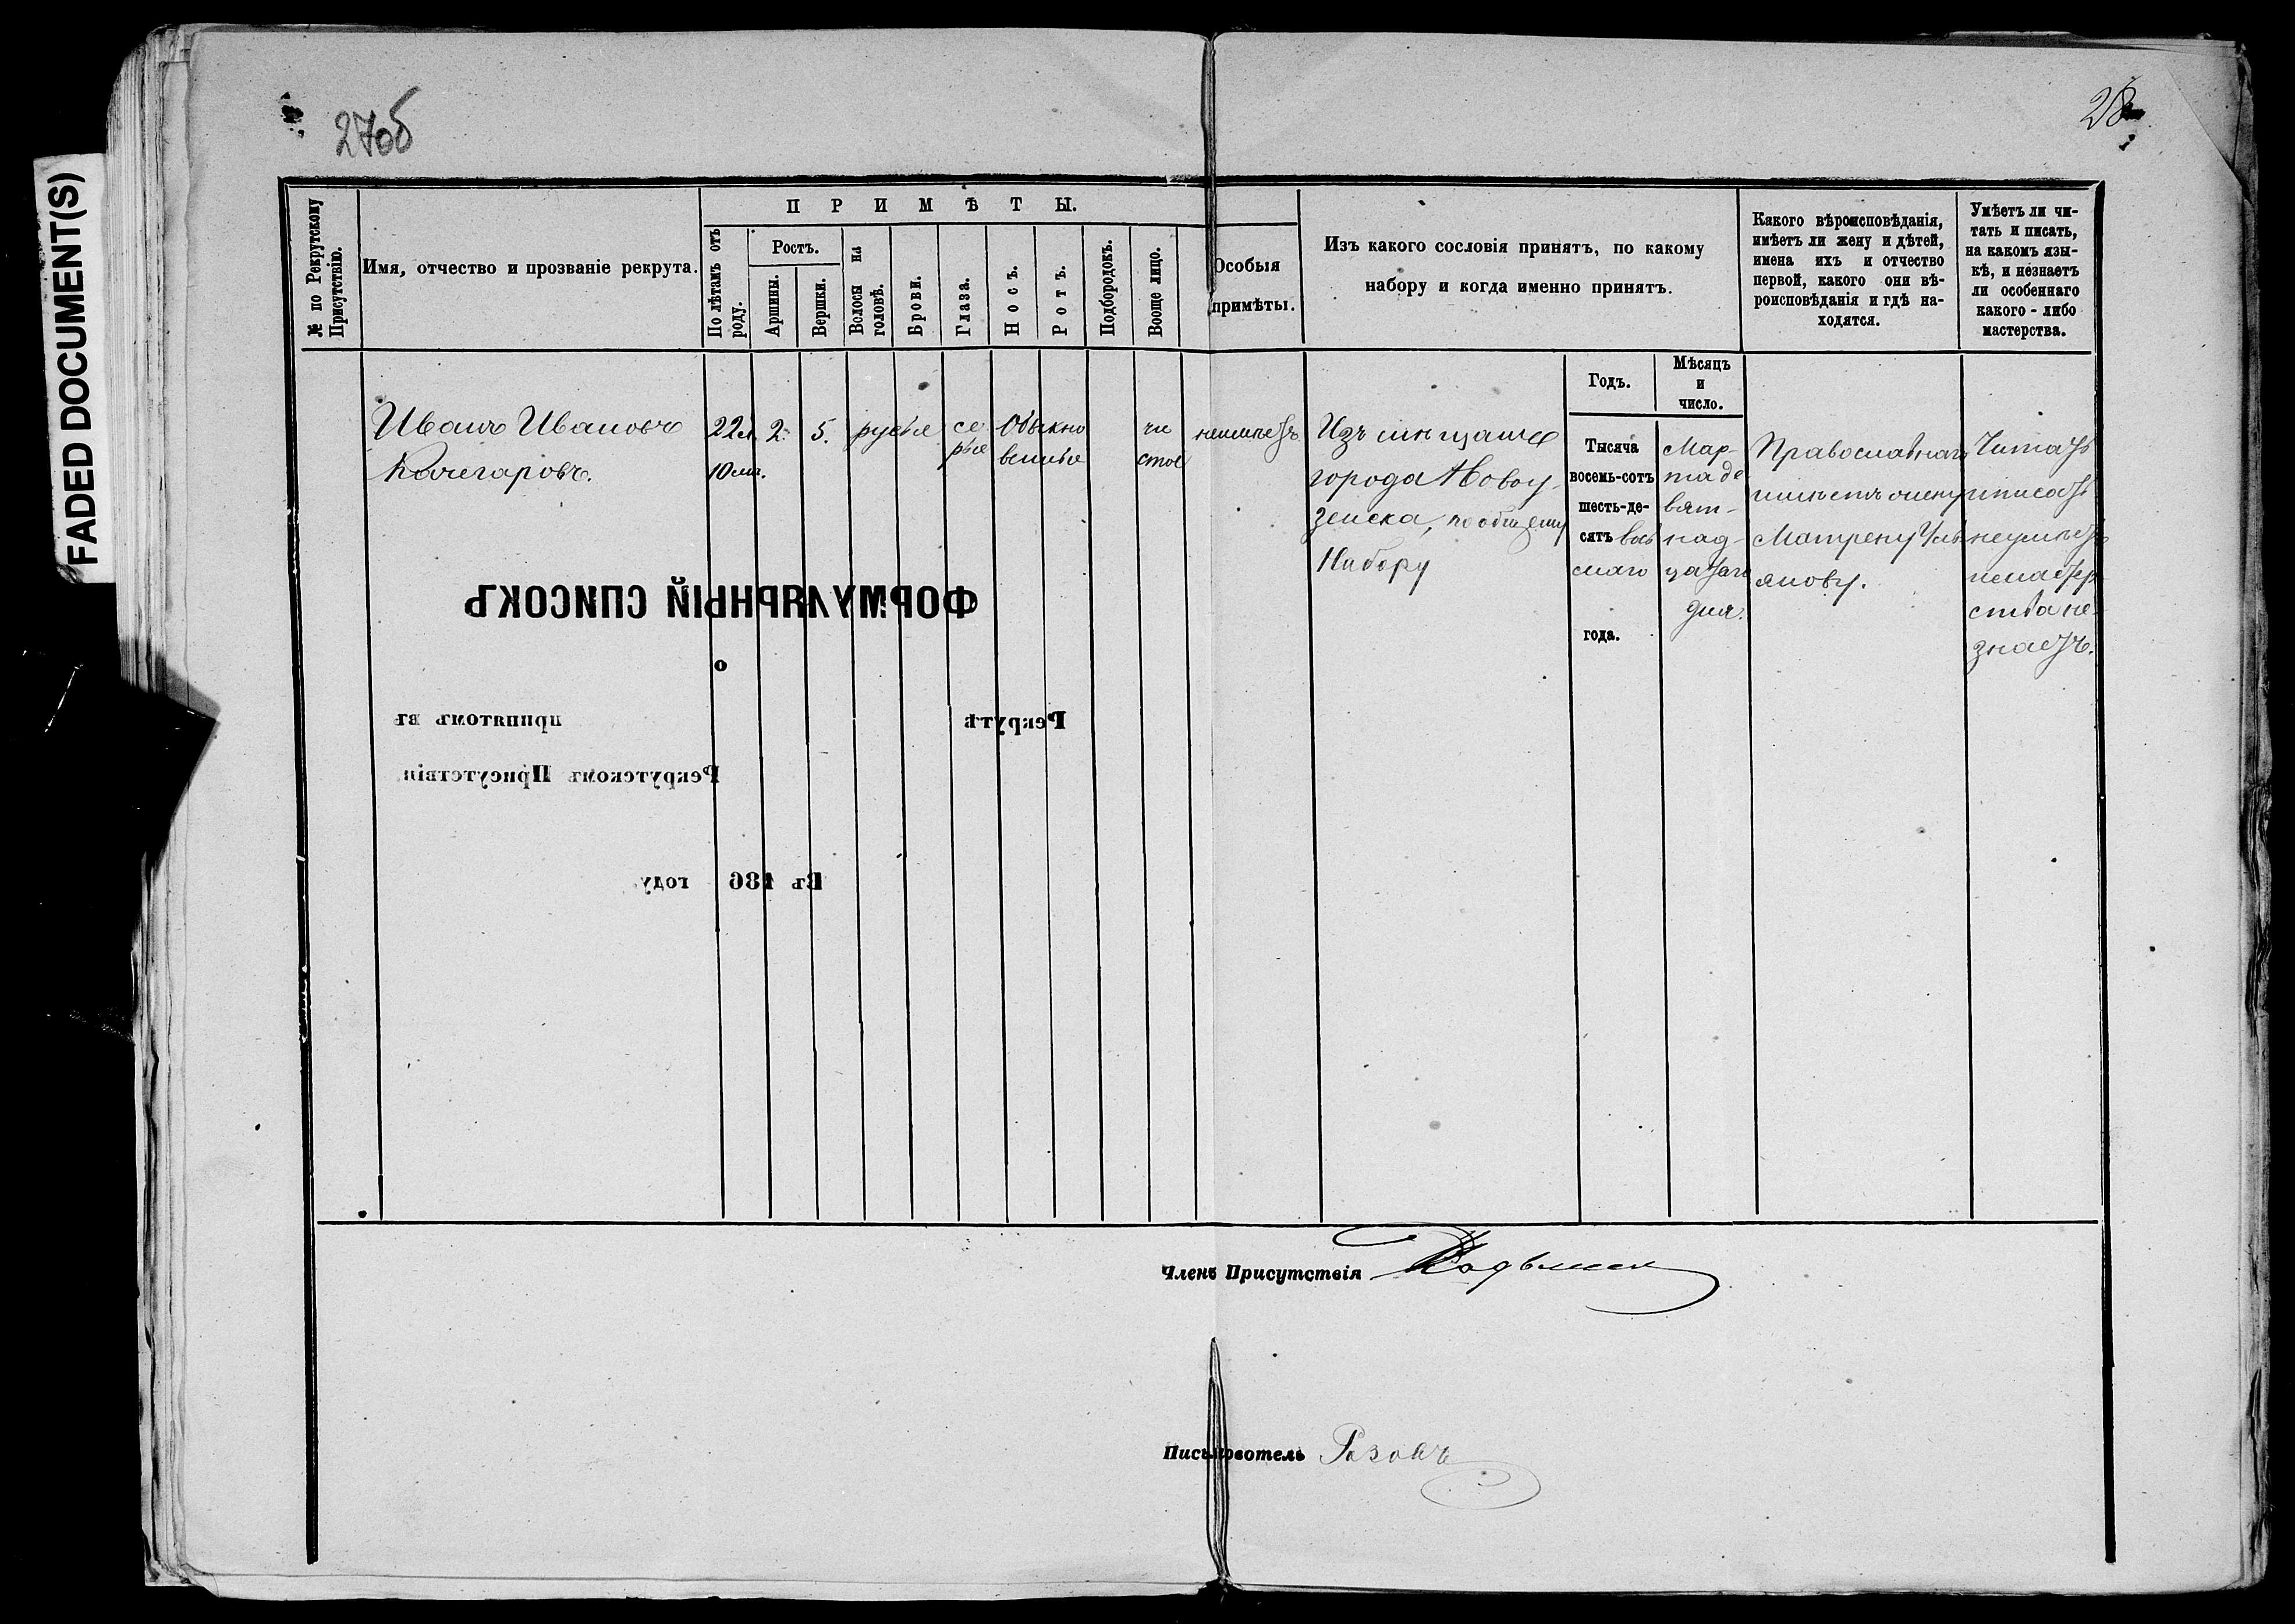 FADED DOCUMENT(S)
27об
28
№ по Рекрутскому Присутствію.
Имя, отчество и прозваніе рекрута.
ПРИМѢТЫ.
По лѣтамъ отъ роду.
Ростъ.
Аршины.
Вершки.
Волосы на головѣ.
Брови.
Глаза.
Носъ.
Ротъ.
Подбородокъ.
Вооще лицо.
Особыя
примѣты.
Изъ какого сословія принятъ, по какому
набору и когда именно принятъ.
Какого вѣроисповѣданія,
имѣетъ ли жену и дѣтей,
имена ихъ и отчество
первой, какого они вѣ-
роисповѣданія и гдѣ на-
ходятся.
Умѣетъ ли чи-
тать и писать,
на какомъ язы-
кѣ, и незнаетъ
ли особеннаго
какого-либо
мастерства.
Годъ.
Мѣсяцъ
и
число.
Иванъ Ивановъ
Кочегаровъ.
22 л.
10 м.
2.
5.
русые
се
рые
Обыкно
венные
чи
стое
неимѣетъ
Изъ мещанъ
города Новоу-
зенска, по общему
Набору
Тысяча
восемь-сотъ
шесть-де-
сятъ вось
маго
года.
Мар-
та де
вят-
над-
цатаго
дня.
Православнаго
имѣетъ жену
Матрену Уль
янову.
Читать
и писать
неумѣетъ
и мастер
ства не
знаетъ.
ФОРМУЛЯРНЫЙ СПИСОКЪ
о
Рекрутѣ
принятомъ въ
Рекрутскомъ Присутствіи.
Въ 186 году.
Членъ Присутствія
Письмоводитель Розовъ